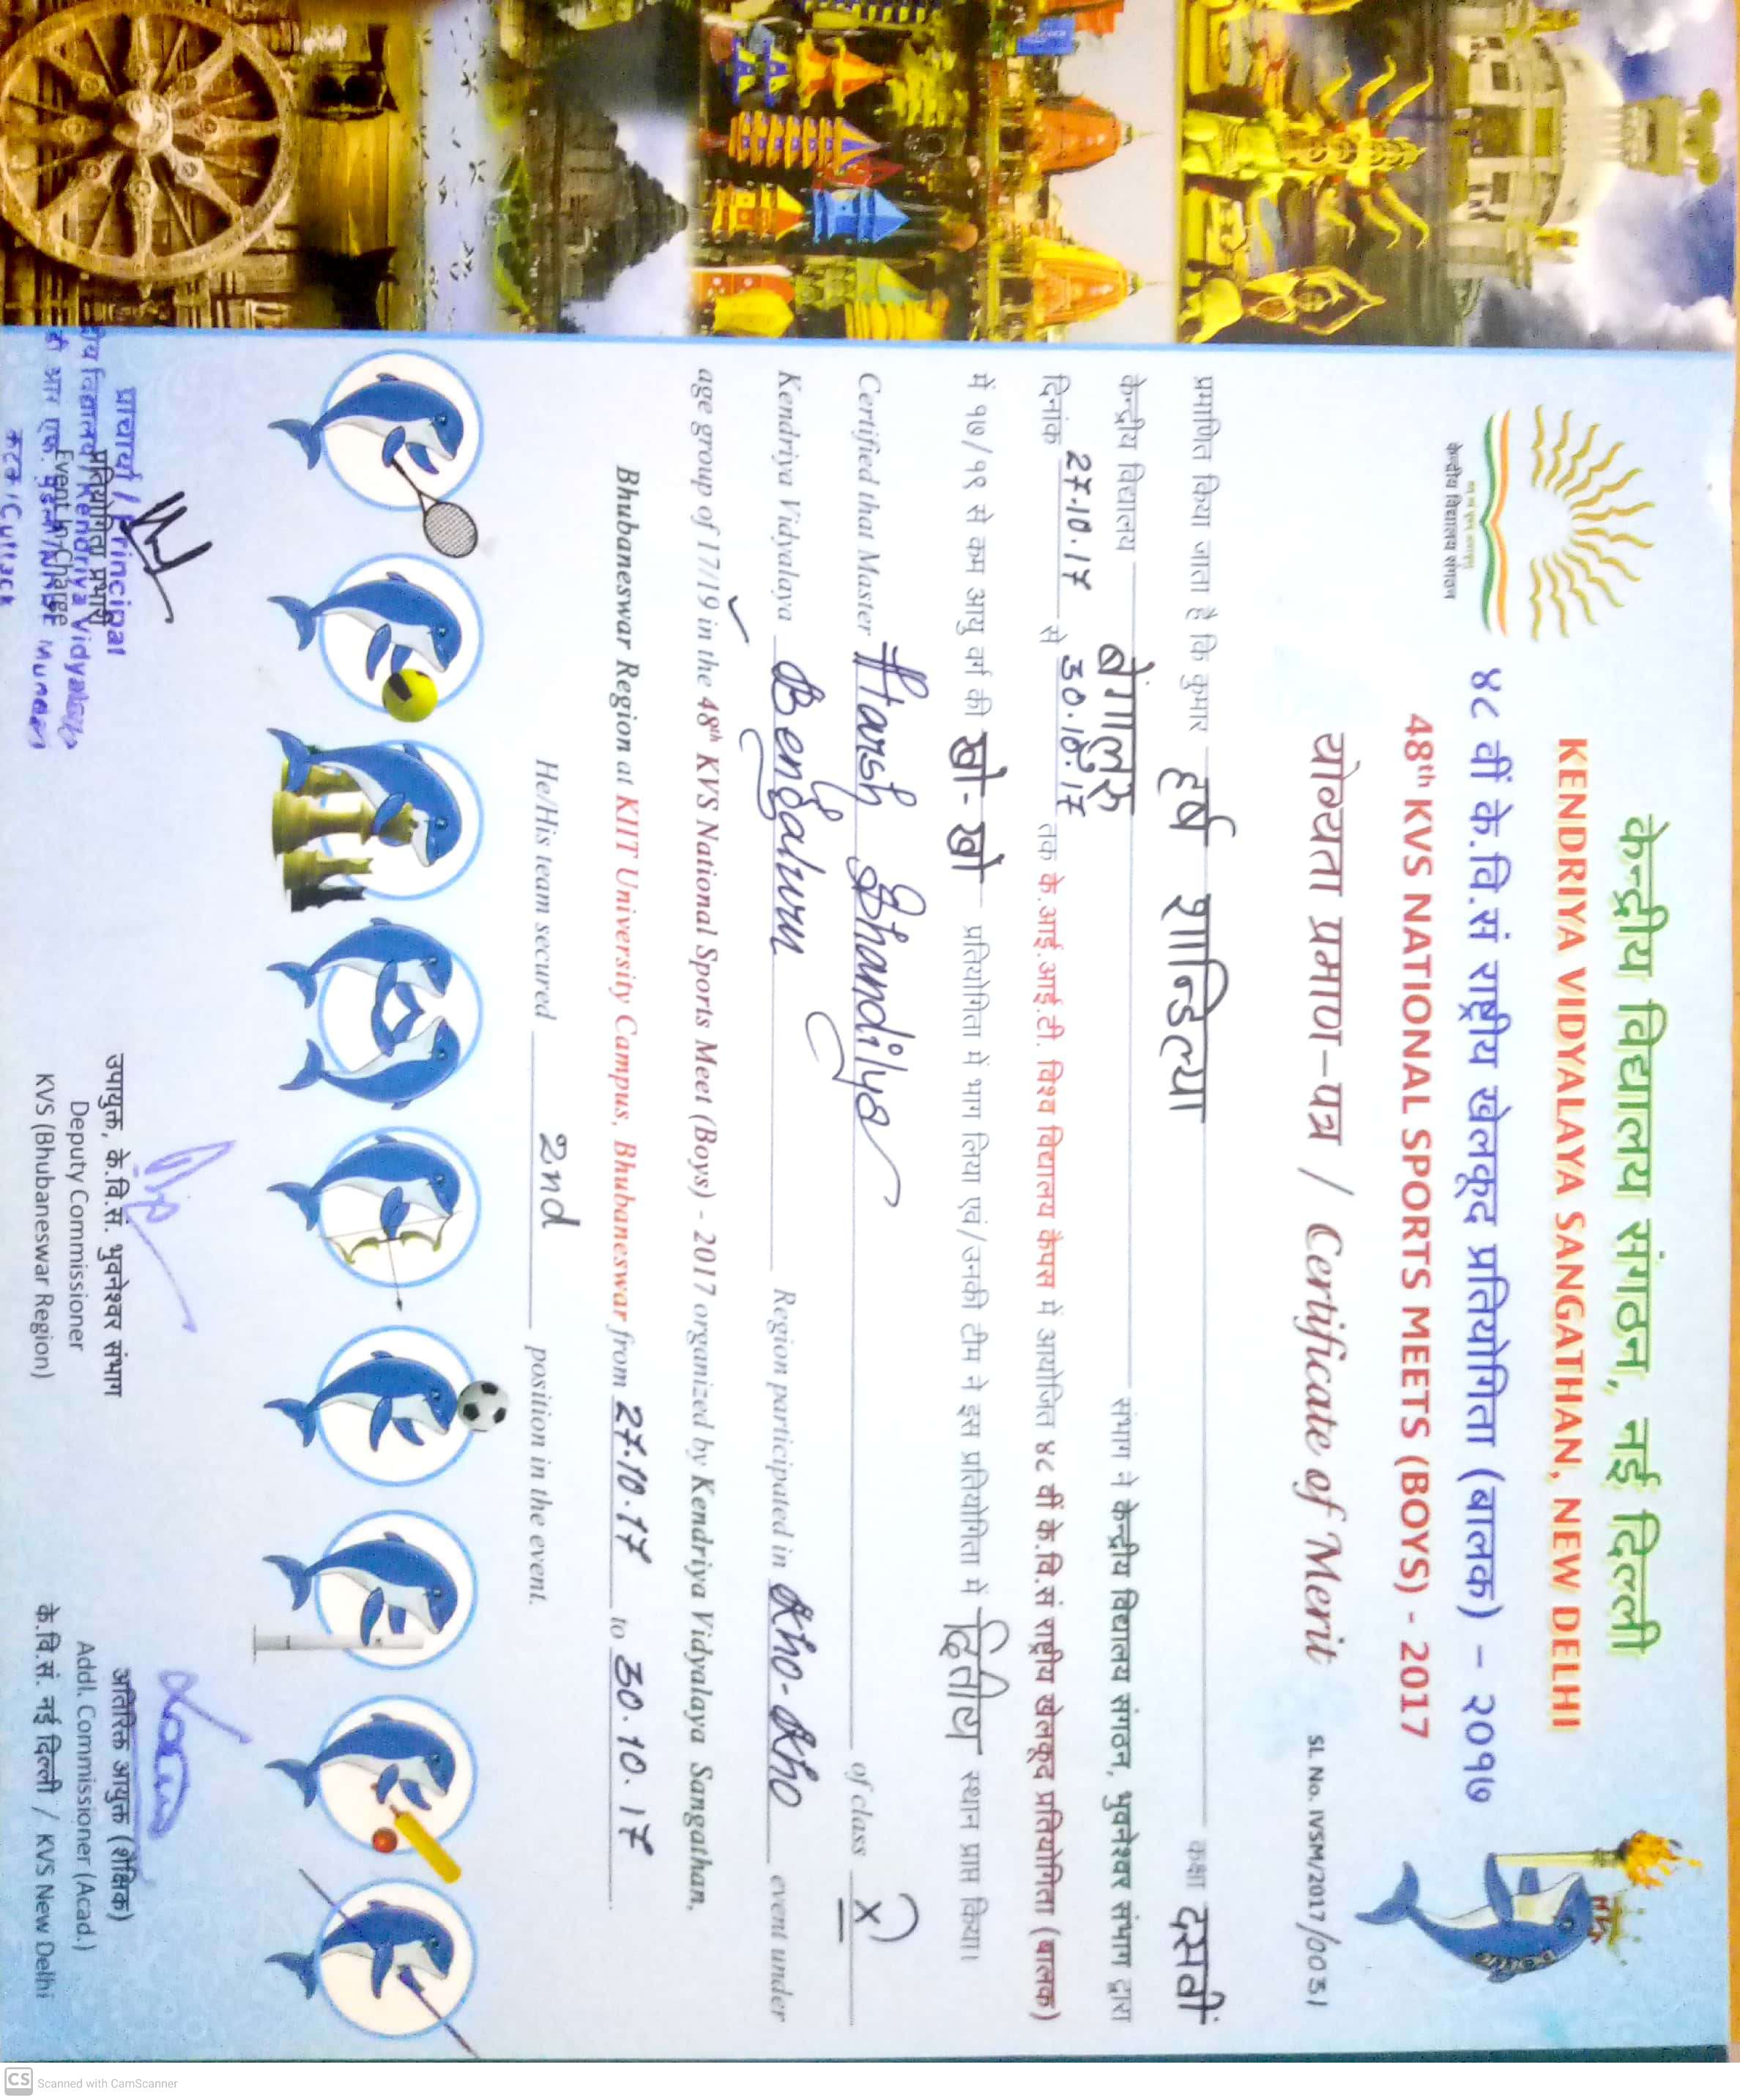 केन्द्रीय विद्यालय संगठन, नई दिल्ली
KENDRIYA VIDYALAYA SANGATHAN, NEW DELHI
केन्द्रीय विद्यालय संगठन
४८ वीं के.वि.सं राष्ट्रीय खेलकूद प्रतियोगिता (बालक) – २०१७
48th KVS NATIONAL SPORTS MEETS (BOYS) - 2017
योग्यता प्रमाण-पत्र / Certificate of Merit SL No. IVSM/2017/0031
प्रमाणित किया जाता है कि कुमार हर्ष शान्डिल्या कक्षा दसवीं
केन्द्रीय विद्यालय बेंगालुरु संभाग ने केन्द्रीय विद्यालय संगठन, भुवनेश्वर संभाग द्वारा
दिनांक 27.10.17 से 30.10.17 तक के.आई.आई.टी. विश्व विद्यालय कैपस में आयोजित ४८ वीं के.वि.सं राष्ट्रीय खेलकूद प्रतियोगिता (बालक)
में १७/१९ से कम आयु वर्ग की खो-खो प्रतियोगिता में भाग लिया एवं/उनकी टीम ने इस प्रतियोगिता में द्वितीय स्थान प्राप्त किया।
Certified that Master Harsh Shandilya of class X
Kendriya Vidyalaya Bengaluru Region participated in Kho-Kho event under
age group of 17/19 in the 48th KVS National Sports Meet (Boys) - 2017 organized by Kendriya Vidyalaya Sangathan,
Bhubaneswar Region at KIIT University Campus, Bhubaneswar from 27.10.17 to 30.10.17
He/His team secured 2nd position in the event.
प्राचार्या / Principal
प्रतियोगिता प्रभारी
विद्यालय / Kendriya Vidyalaya
Event In-Charge
डी आर एफ. Mundali
कटक / Cuttack
उपायुक्त, के.वि.सं. भुवनेश्वर संभाग
Deputy Commissioner
KVS (Bhubaneswar Region)
अतिरिक्त आयुक्त (शैक्षिक)
Addl. Commissioner (Acad.)
के.वि.सं. नई दिल्ली / KVS New Delhi
CS Scanned with CamScanner